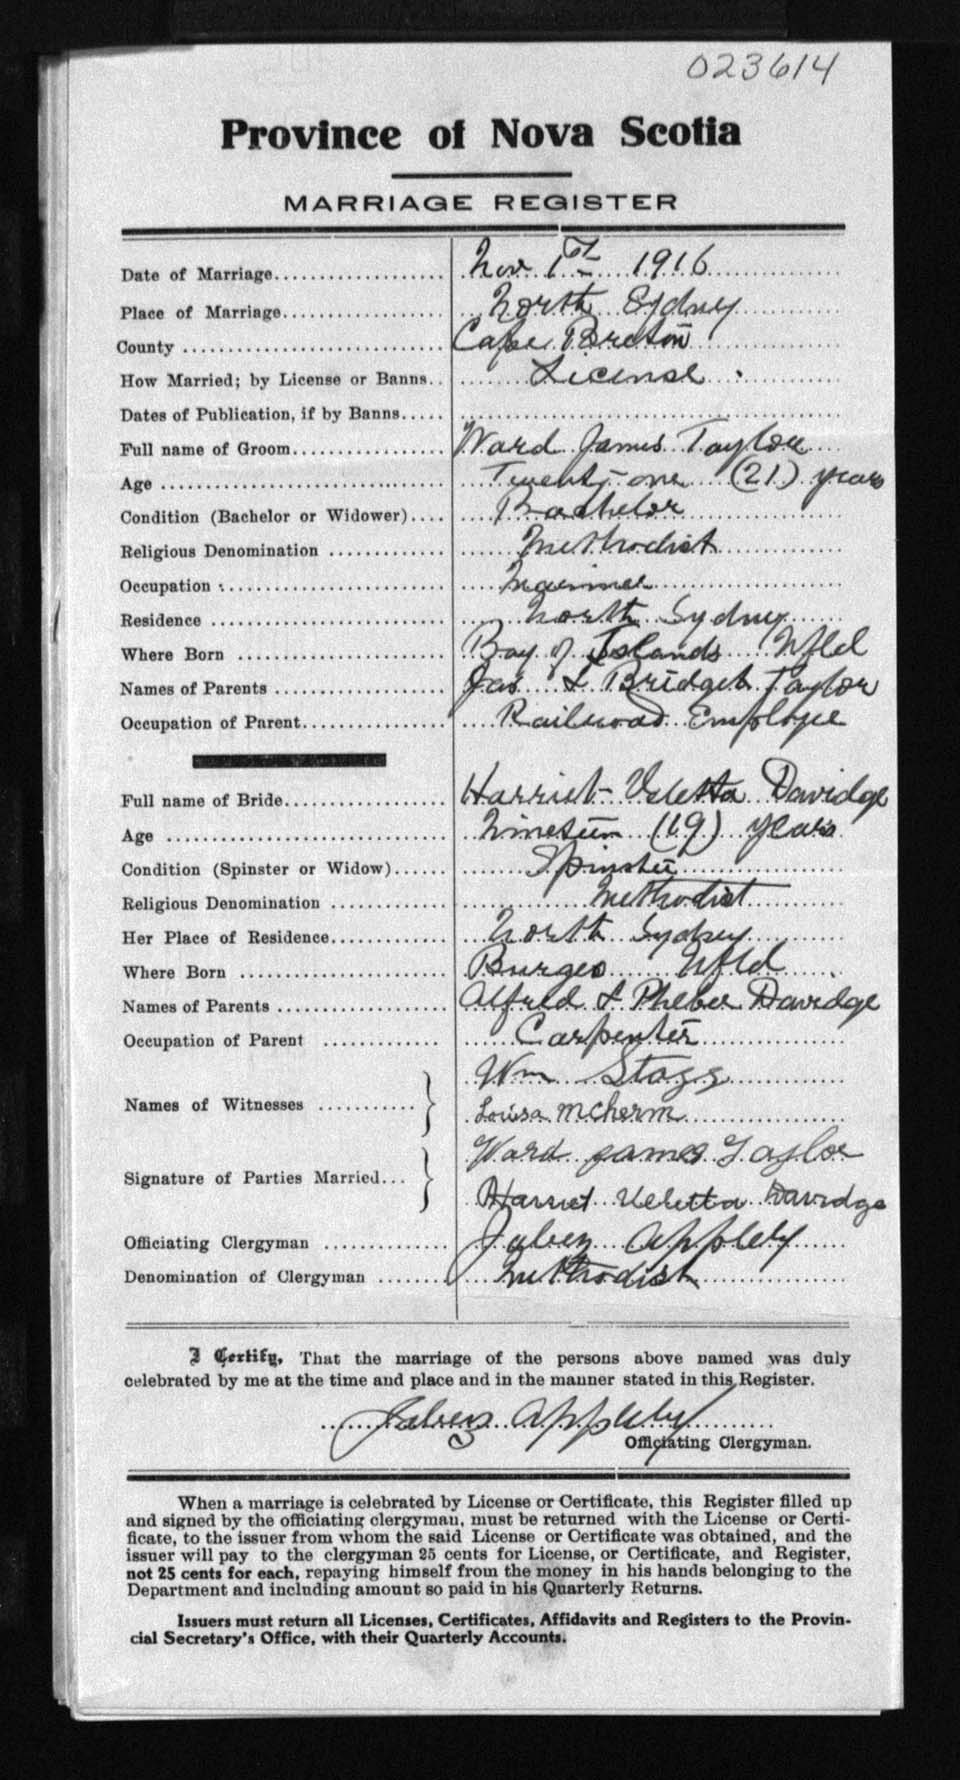 023614
Province of Nova Scotia
MARRIAGE REGISTER
Date of Marriage.................... Nov 1st 1916
Place of Marriage................... North Sydney
County .............................. Cape Breton
How Married; by License or Banns.. License
Dates of Publication, if by Banns.....
Full name of Groom.................. Ward James Taylor
Age ................................. Twenty-one (21) years
Condition (Bachelor or Widower).... Bachelor
Religious Denomination ............. Methodist
Occupation :........................
Residence .......................... North Sydney
Where Born ........................ Bay of Islands Nfld
Names of Parents .................. Jas & Bridget Taylor
Occupation of Parent............... Railroad Employee
Full name of Bride.................. Harriet Veletta Davidge
Age ................................. Nineteen (19) years
Condition (Spinster or Widow)...... Spinster
Religious Denomination ............ Methodist
Her Place of Residence............. North Sydney
Where Born ........................ Burgeo Nfld
Names of Parents .................. Alfred & Phebee Davidge
Occupation of Parent ............. Carpenter
Wm Stagg
Names of Witnesses ...........
Louisa
Ward James Taylor
Signature of Parties Married...
Harriet Veletta Davidge
Officiating Clergyman .............. Jabez Appleby
Denomination of Clergyman ....... Methodist
I Certify, That the marriage of the persons above named was duly
celebrated by me at the time and place and in the manner stated in this Register.
Jabez Appleby
Officiating Clergyman.
When a marriage is celebrated by License or Certificate, this Register filled up
and signed by the officiating clergyman, must be returned with the License or Certi-
ficate, to the issuer from whom the said License or Certificate was obtained, and the
issuer will pay to the clergyman 25 cents for License, or Certificate, and Register,
not 25 cents for each, repaying himself from the money in his hands belonging to the
Department and including amount so paid in his Quarterly Returns.
Issuers must return all Licenses, Certificates, Affidavits and Registers to the Provin-
cial Secretary's Office, with their Quarterly Accounts.